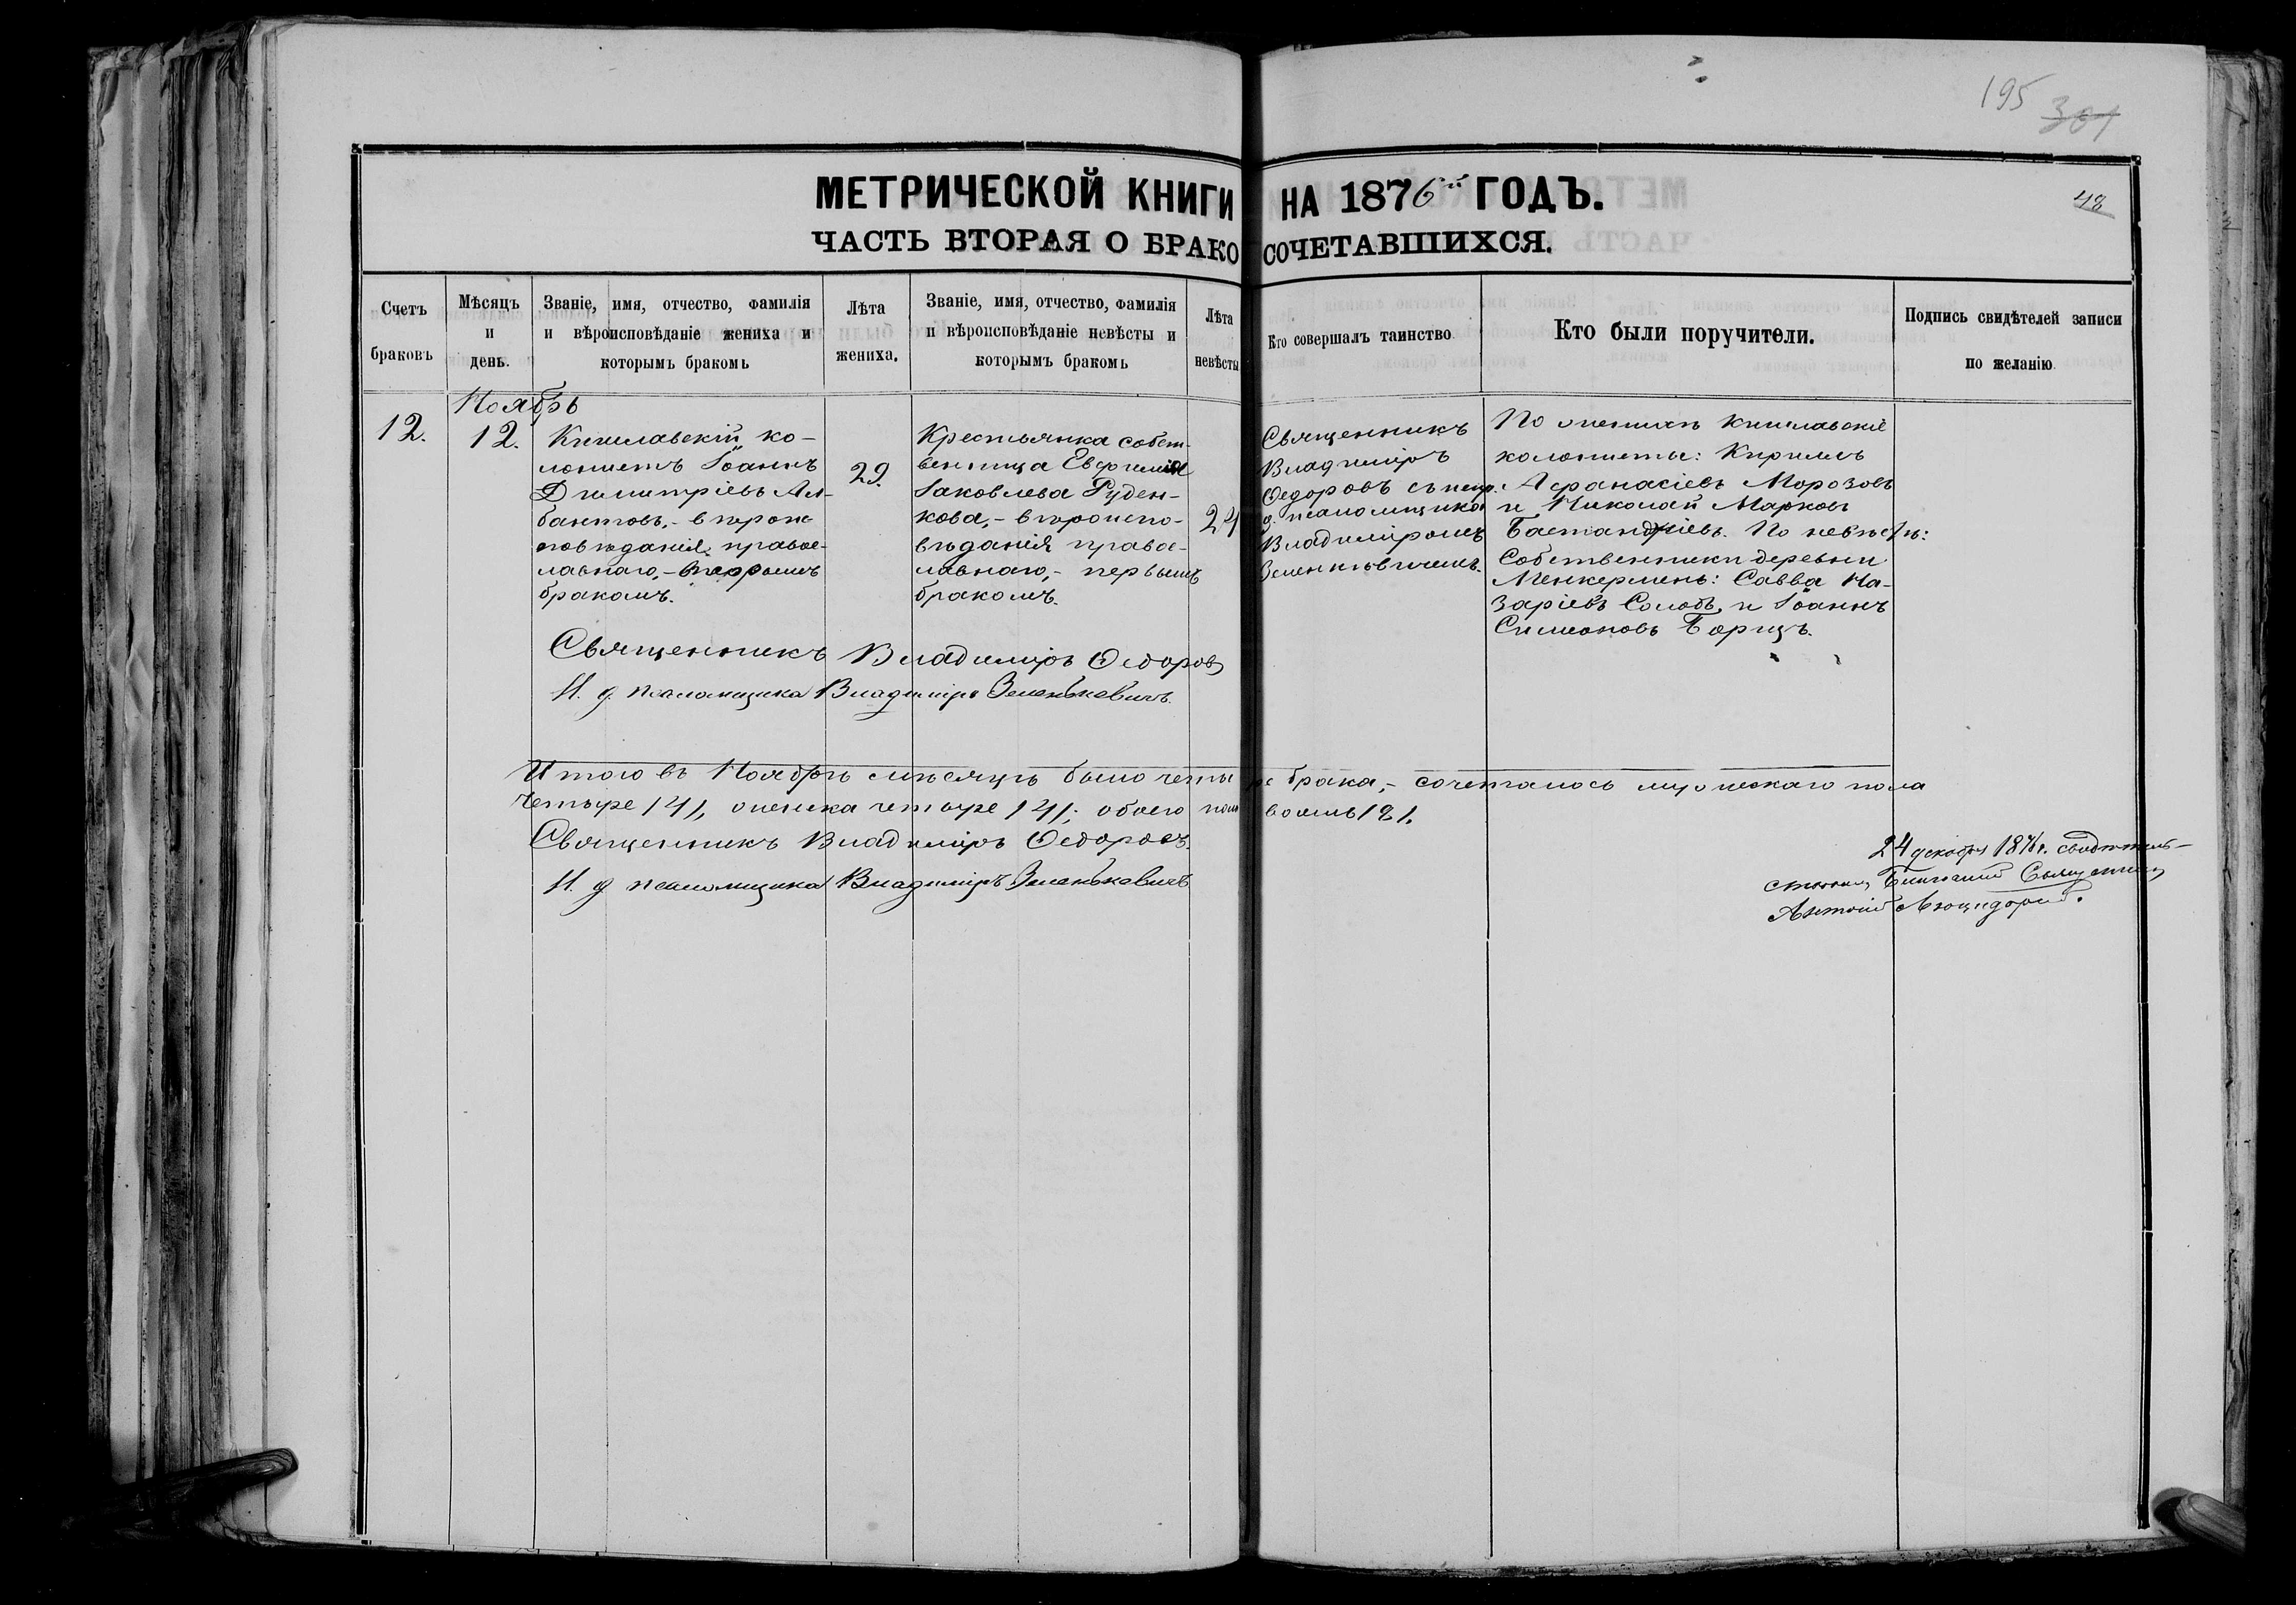 195
301
МЕТРИЧЕСКОЙ КНИГИ НА 1876й ГОДЪ.
48
ЧАСТЬ ВТОРАЯ О БРАКОСОЧЕТАВШИХСЯ.
Счетъ
браковъ
Мѣсяцъ
и
день.
Званіе, имя, отчество, фамилія
и вѣроисповѣданіе жениха и
которымъ бракомъ
Лѣта
жениха.
Званіе, имя, отчество, фамилія
и вѣроисповѣданіе невѣсты и
которымъ бракомъ
Лѣта
невѣсты
Кто совершалъ таинство
Кто были поручители.
Подпись свидѣтелей записи
по желанію
Ноябрь
12.
12.
Кишлавскій ко-
лонистъ Іоаннъ
Димитріевъ Ал-
бантовъ,- вѣроис-
повѣданія правос-
лавнаго,- вторымъ
бракомъ.
29.
Крестьянка собст-
венница Евфимія
Іаковлева Руден-
кова,- вѣроиспо-
вѣданія правос-
лавнаго,- первымъ
бракомъ.
24
Священникъ
Владиміръ
Ѳедоровъ съ испр.
д. псаломщика
Владиміромъ
Зеленкѣвичемъ.
По женихѣ Кишлавскіе
колонисты: Кириллъ
Аѳанасіевъ Морозовъ
и Николай Марковъ
Бастанджіевъ. По невѣстѣ:
Собственники деревни
Менкермень: Савва На-
заріевъ Солодъ, и Іоаннъ
Симеоновъ Борищъ.
Священникъ Владиміръ Ѳедоровъ
И. д. псаломщика Владиміръ Зеленькевичъ.
Итого въ Ноябрѣ мѣсяцѣ было четыре брака,- сочеталось мужескаго пола
четыре /4/, женска четыре /4/; обоего пола восемь /8/.
Священникъ Владиміръ Ѳедоровъ.
И. д. псаломщика Владиміръ Зеленькевичъ
24 декабря 1876 г. свидѣтель-
ствовалъ Благочинный Священникъ
Антоній